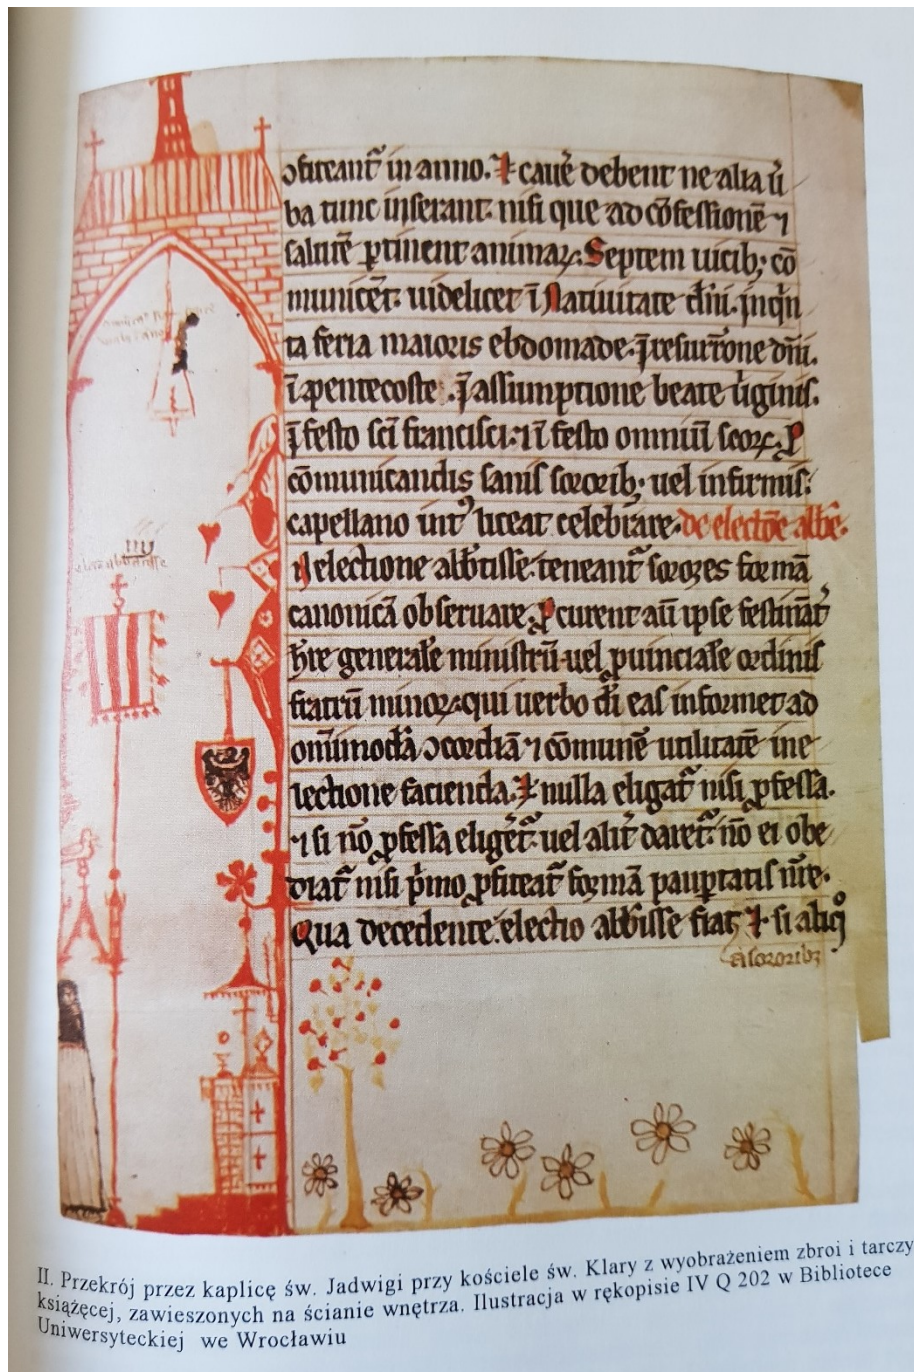 ↄfiteant᷑ in anno. It caue᷑ debent ne alia u᷑
ba tunc inserant. nisi que ad cōfessionē ⁊
salutē ꝑtinent animaꝝ. Septem uicibꝫ cō
municēt. uidelicet ī Natiuitate dn̄i. ī qͥn
ta feria maioris ebdomade. ī resurr̄one dn̄i.
ī pentecoste. ī assumptione beate u᷑ginis.
ī festo sc̄i francisci. ⁊ ī festo omniū sc̄oꝝ. P̄
cōmunicandis sanis sororibꝫ. uel infirmis.
capellano int᷒ liceat celebrare. de elect̄oe abb̄e.
In electione abb̄tisse. teneant᷑ sorores formā
canonicā obseruare. ꝓcurent aū ipse festināt᷑
h̄re generale᷑ ministrū. uel ꝓuinciale᷑ ordinis
fratrū minoꝝ. qui uerbo dī eas informet ad
om̄imodā ↄcordiā ⁊ cōmunē utilitatē in e
lectione facienda. Et nulla eligat᷑ nisi ꝓfessa.
⁊ si nō ꝓfessa eligēt᷑. uel alit᷑ daret᷑. nō ei obe
diat᷑ nisi pͥmo ꝓfiteat᷑ formā pauꝑtatis nr̄e.
Qua decedente. electio abb̄isse fiat. Et si aliqͦ
a sororibꝫ
II. Przekrój przez kaplicę św. Jadwigi przy kościele św. Klary z wyobrażeniem zbroi i tarczy
książęcej, zawieszonych na ścianie wnętrza. Ilustracja w rękopisie IV Q 202 w Bibliotece
Uniwersyteckiej we Wrocławiu